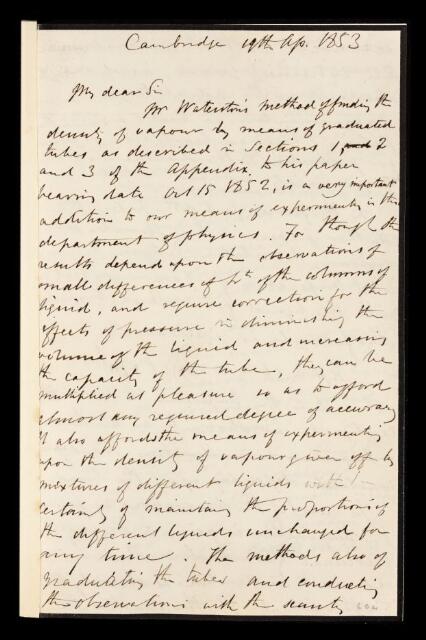 Cambridge 19th Ap. 1853
My dear Sir
Mr Waterston's method of finding the
density of vapour by means of graduated
tubes as described in Sections 1, 2
and 3 of the Appendix, to his paper
bearing date Oct 15 1852, is a very important
addition to our means of experimenting in this
department of physics. For though the
results depend upon the observations of
small differences of ht of the columns of
liquid, and require correction for the
effects of pressure in diminishing the
volume of the liquid and increasing
the capacity of the tube, they can be
multiplied at pleasure so as to afford
almost any required degree of accuracy
It also affords the means of experimenting
upon the density of vapour given off by
mixtures of different liquids with
certainty of maintaining the proportions of
the different liquids unchanged for
any time. The methods also of
graduating the tubes and conducting
the observations with the scanty